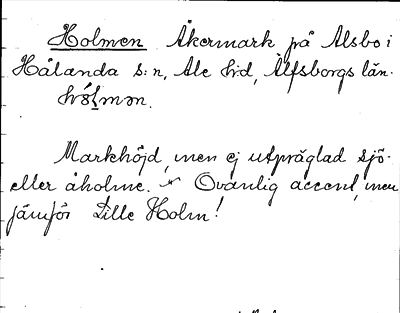 Holmen Åkermark på Alsbo i
Hålanda s:n, Ale hd, Älfsborgs län.
hól̠mən.
Markhöjd, men ej utpräglad sjö-
eller åholme. Ovanlig accent, men
jämför Lille Holm!